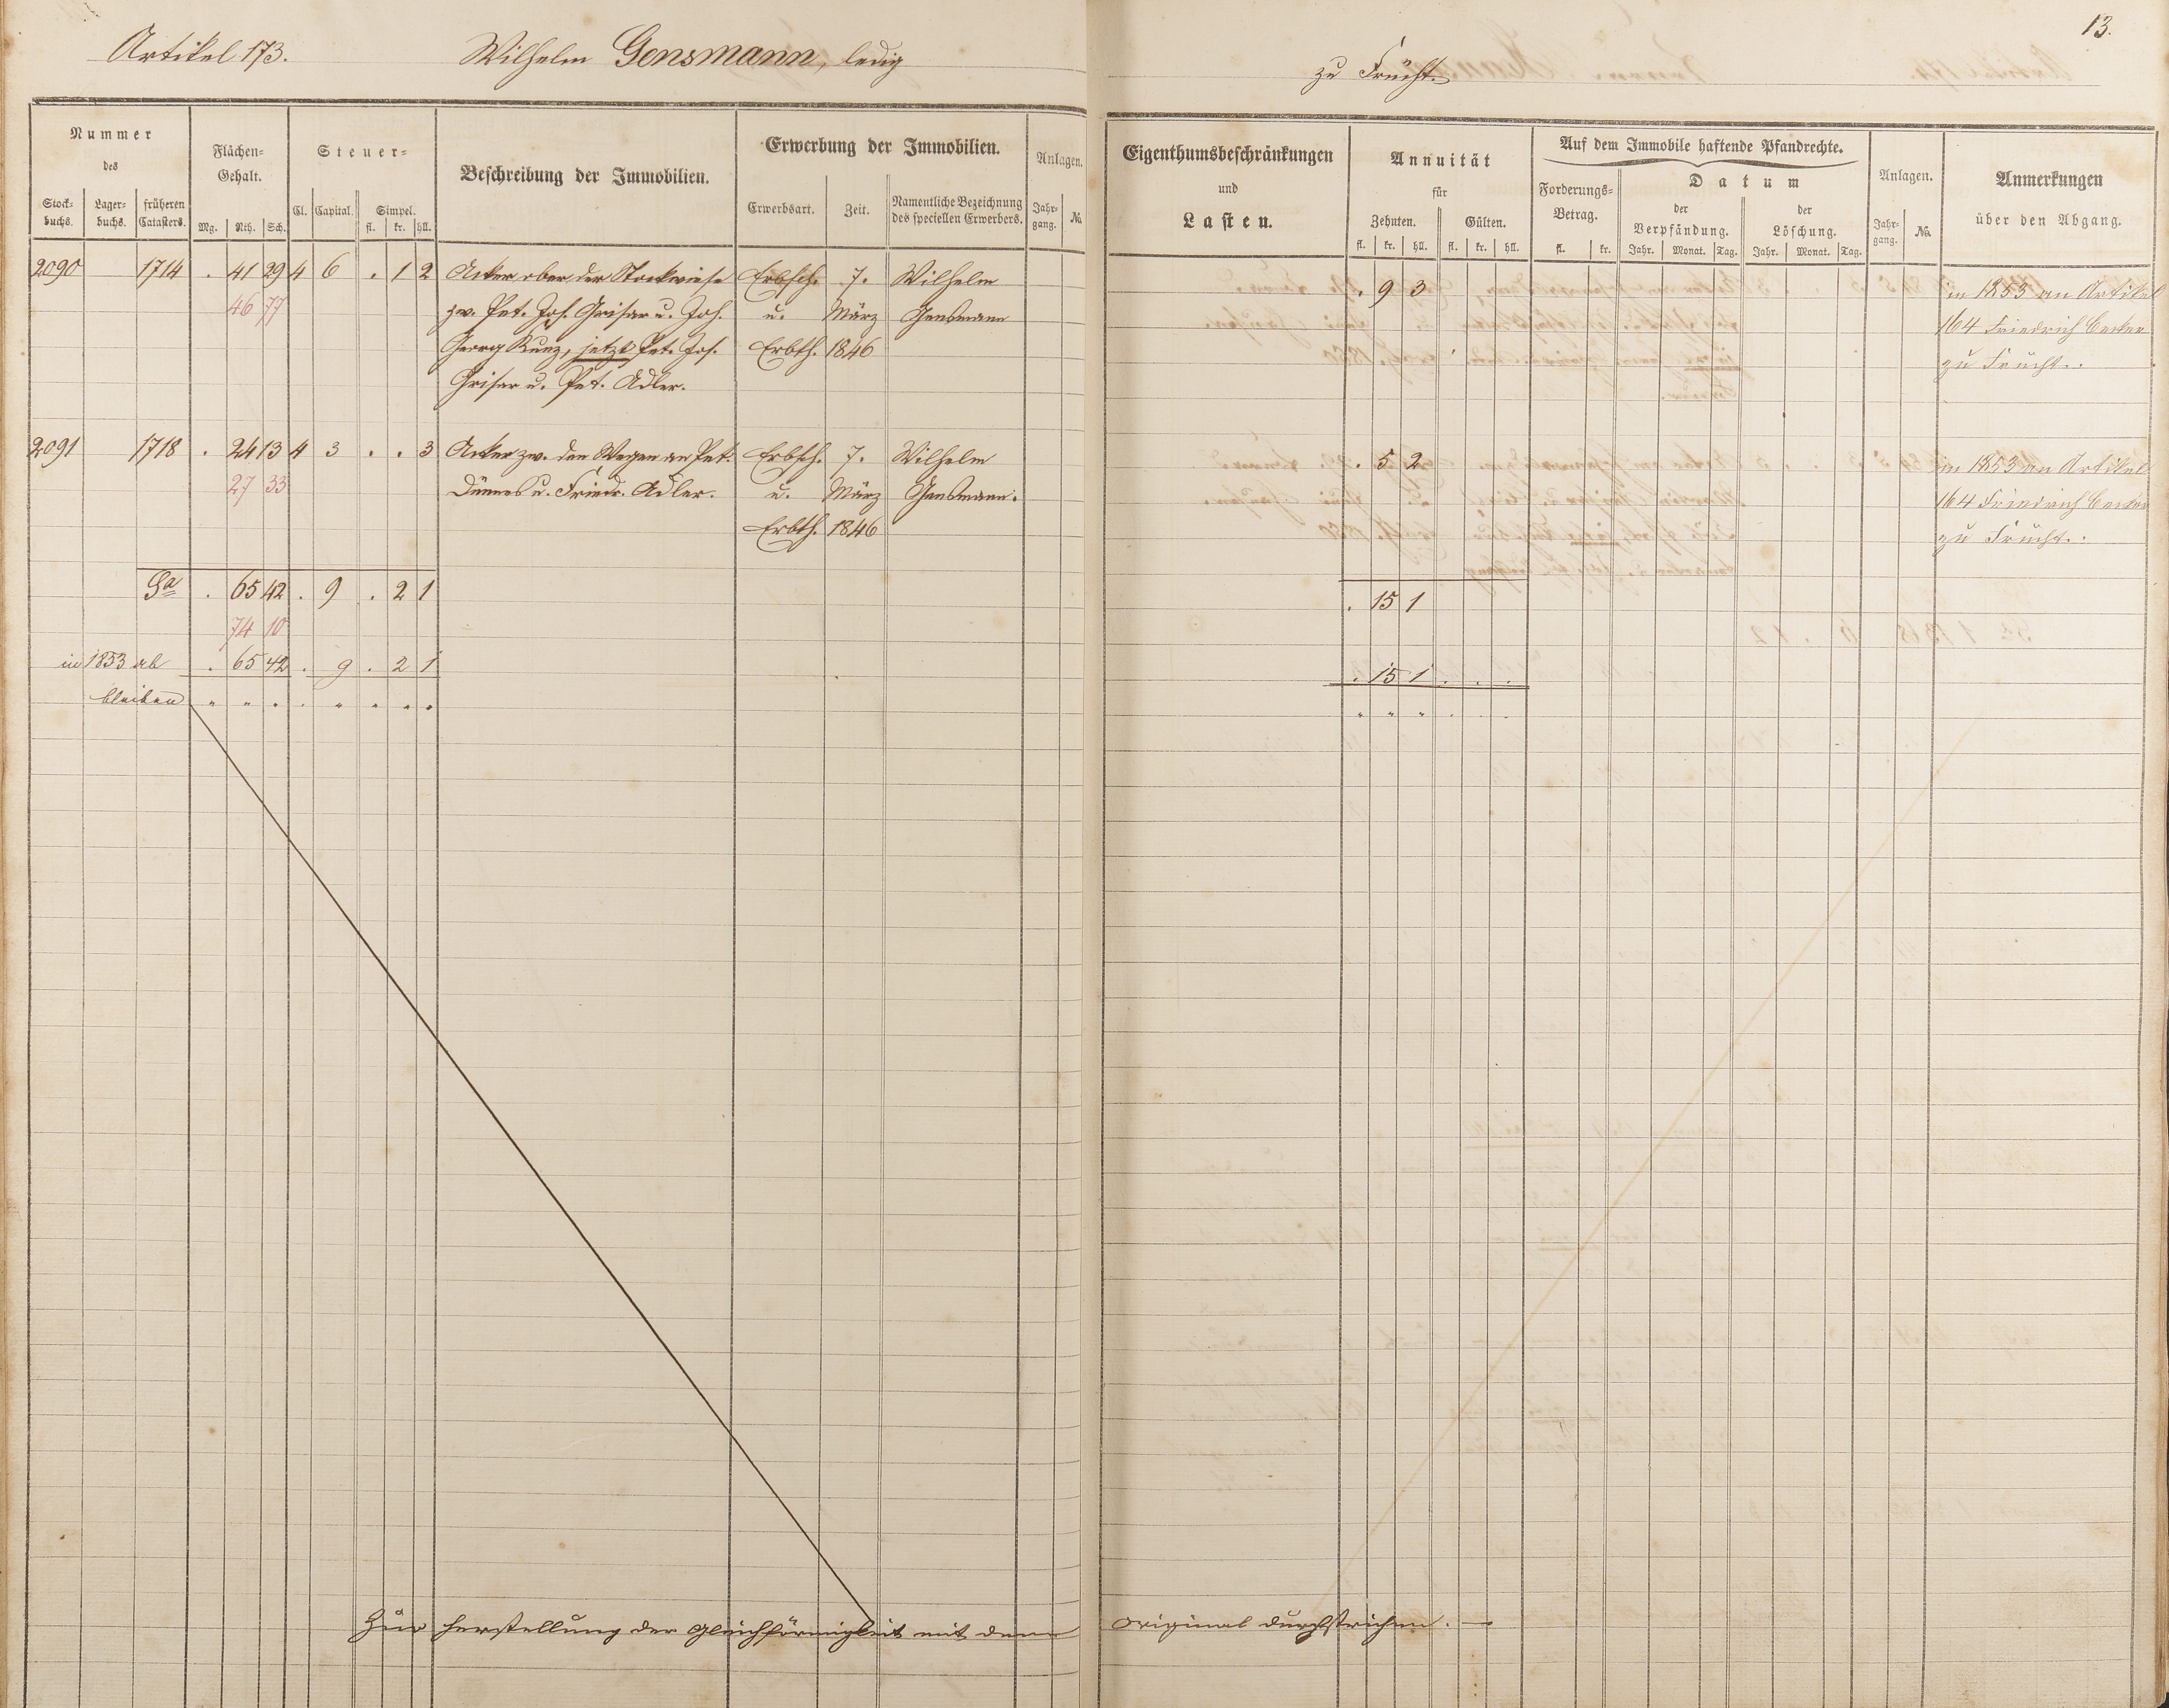 13.
Artikel 173. Wilhelm Gensmann, ledig zu Frücht.
Nummer des
Stockbuchs. Lagerbuchs. früheren Catasters.
Flächen-Gehalt.
Mg. Rth. Sch.
Steuer-
Cl. Capital. Simpel. fl. kr. hll.
Beschreibung der Immobilien.
Erwerbung der Immobilien.
Erwerbsart. Zeit. Namentliche Bezeichnung des speciellen Erwerbers.
Anlagen.
Jahrgang. No.
Eigenthumsbeschränkungen und Lasten.
Annuität für
Zehnten. Gülten.
fl. kr. hll. fl. kr. hll.
Auf dem Immobile haftende Pfandrechte.
Forderungs-Betrag. fl. kr.
Datum
der Verpfändung. der Löschung.
Jahr. Monat. Tag. Jahr. Monat. Tag.
Anlagen.
Jahrgang. No.
Anmerkungen über den Abgang.
2090 1714 . 41 29 4 6 . 1 2 Acker ober der Stockwiese Erbsch. 7. Wilhelm . 9 3 in 1853 an Artikel
46 77 zw. Pet. Jos. Grisar u. Joh. u. März Gensmann 164 Friedrich Becker
Georg Kunz, jetzt Pet. Jos. Erbth. 1846 zu Frücht.
Grisar u. Pet. Adler.
2091 1718 . 24 13 4 3 . . 3 Acker zw. den Wegen an Pet. Erbsch. 7. Wilhelm . 5 2 in 1853 an Artikel
27 33 Dünnes u. Friedr. Adler. u. März Gensmann. 164 Friedrich Becker
Erbth. 1846 zu Frücht.
Sa . 65 42 . 9 . 2 1 . 15 1
74 10
in 1853 ab . 65 42 . 9 . 2 1 . 15 1 . . .
bleiben " " " . " " " " " " " . . .
Zur Herstellung der Gleichförmigkeit mit dem Original durchstrichen. —